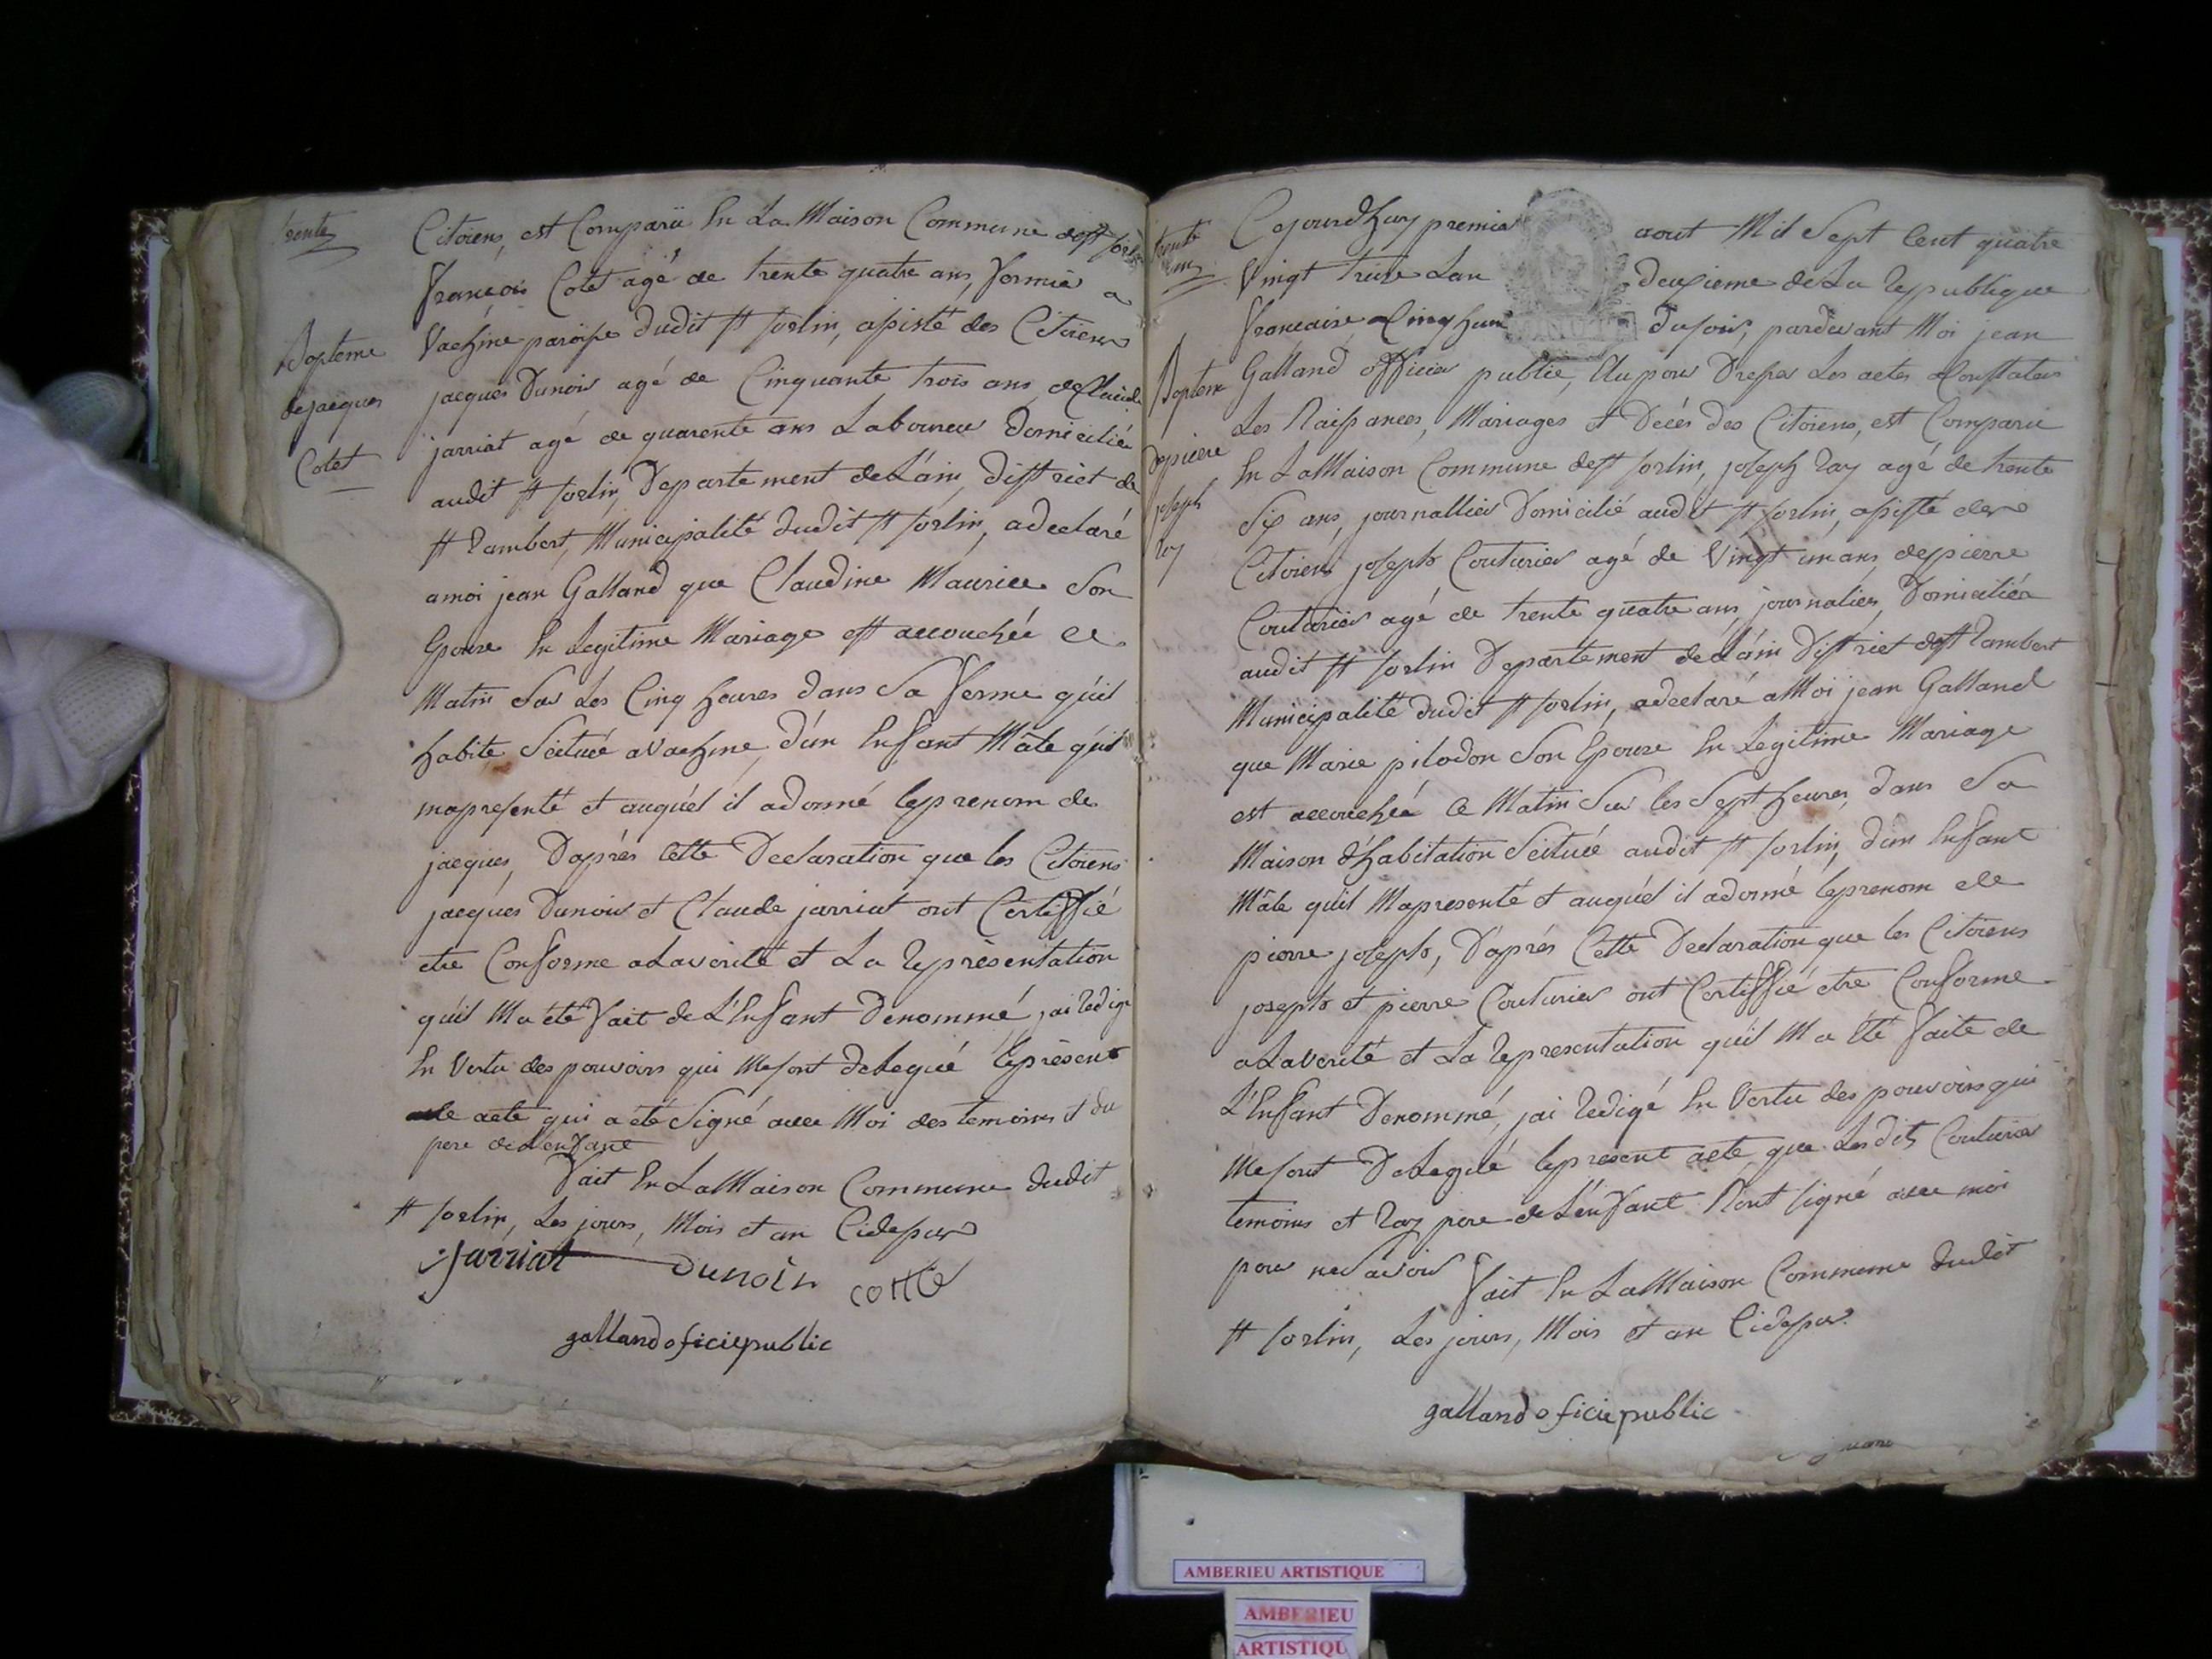 trente
Bapteme
de jacques
Colet
Citoiens, est Comparu En La Maison Commune de st sorlin
François Colet agé de trente quatre ans, fermier a
Vachine paroisse dudit st sorlin, assisté des Citoiens
jacques Dunoir agé de Cinquante trois ans, de Claude
jarriat agé de quarente ans Laboureur Domicilié
audit st sorlin, Departement de L'ain, district de
st Rambert, Municipalité dudit st sorlin, adeclaré
a moi jean Galland que Claudine Maurice Son
Epouse En Legitime Mariage est accouchée ce
Matin Sur Les Cinq heures dans Sa ferme qu'il
habite Scituée a Vachine, d'un Enfant Mâle qu'il
mapresenté et auquel il adonné leprenom de
jacques, D'aprés Cette Declaration que les Citoiens
jacques Dunoir et Claude jarriat ont Certiffié
etre Conforme a Laverité et La Représentation
qu'il Ma été fait de L'Enfant Denommé jai Redigé
En Vertu des pouvoirs qui Me sont delegué leprésent
acte qui a été Signé avec Moi des temoins et du
pere de Lenfant
fait En La Maison Commune dudit
st sorlin, Les jours, Mois et an Cidessus
Jarriat Dunoir
galland oficie public
trente
un
Bapteme
de piere
joseph
ray
Cejourdhuy premier aout Mil Sept Cent quatre
Vingt treize Lan deuxieme de La Republique
francaise a Cinq heures du soir, pardevant Moi jean
Galland officier public, Elu pour Dresser Les actes Constater
Les Naissances, Mariages et Décès des Citoiens, est Comparu
En La Maison Commune de st sorlin, joseph ray agé de trente
Six ans, journallier Domicilié audit st sorlin, assisté des
Citoiens joseph Couturier agé de Vingt un ans, de pierre
Couturier agé de trente quatre ans, journaliers, Domiciliés
audit st sorlin Departement de L'ain District de st Rambert
Municipalité dudit st sorlin, adeclaré a Moi jean Galland
que Marie pilodon Son Epouse En Legitime Mariage
est accouchée Ce Matin Sur les Sept heures, dans Sa
Maison d'habitation Scituée audit st sorlin, d'un Enfant
Mâle qu'il Mapresenté et auquel il adonné leprenom de
pierre joseph, D'aprés Cette Declaration que les Citoiens
joseph et pierre Couturier ont Certiffié etre Conforme
a La Verité et La Representation qu'il Ma été faite de
L'Enfant Denommé, jai Redigé En Vertu des pouvoirs qui
Me sont Delegué lepresent acte que Lesdits Couturier
temoins et Ray pere de L'enfant N'ont signé avec moi
pour ne Savoir
fait En La Maison Commune dudit
st sorlin, Les jours, Mois et an Cidessus
galland oficie public
AMBERIEU ARTISTIQUE
AMBERIEU
ARTISTIQU